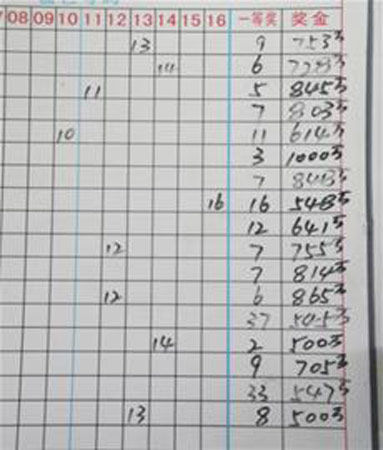 08 09 10 11 12 13 14 15 16 一等奖 奖金
13 9 753万
14 6 728万
11 5 845万
7 803万
10 11 614万
3 1000万
7 848万
16 16 548万
12 641万
12 7 755万
7 814万
12 6 865万
37 505万
14 2 500万
9 705万
33 547万
13 8 500万